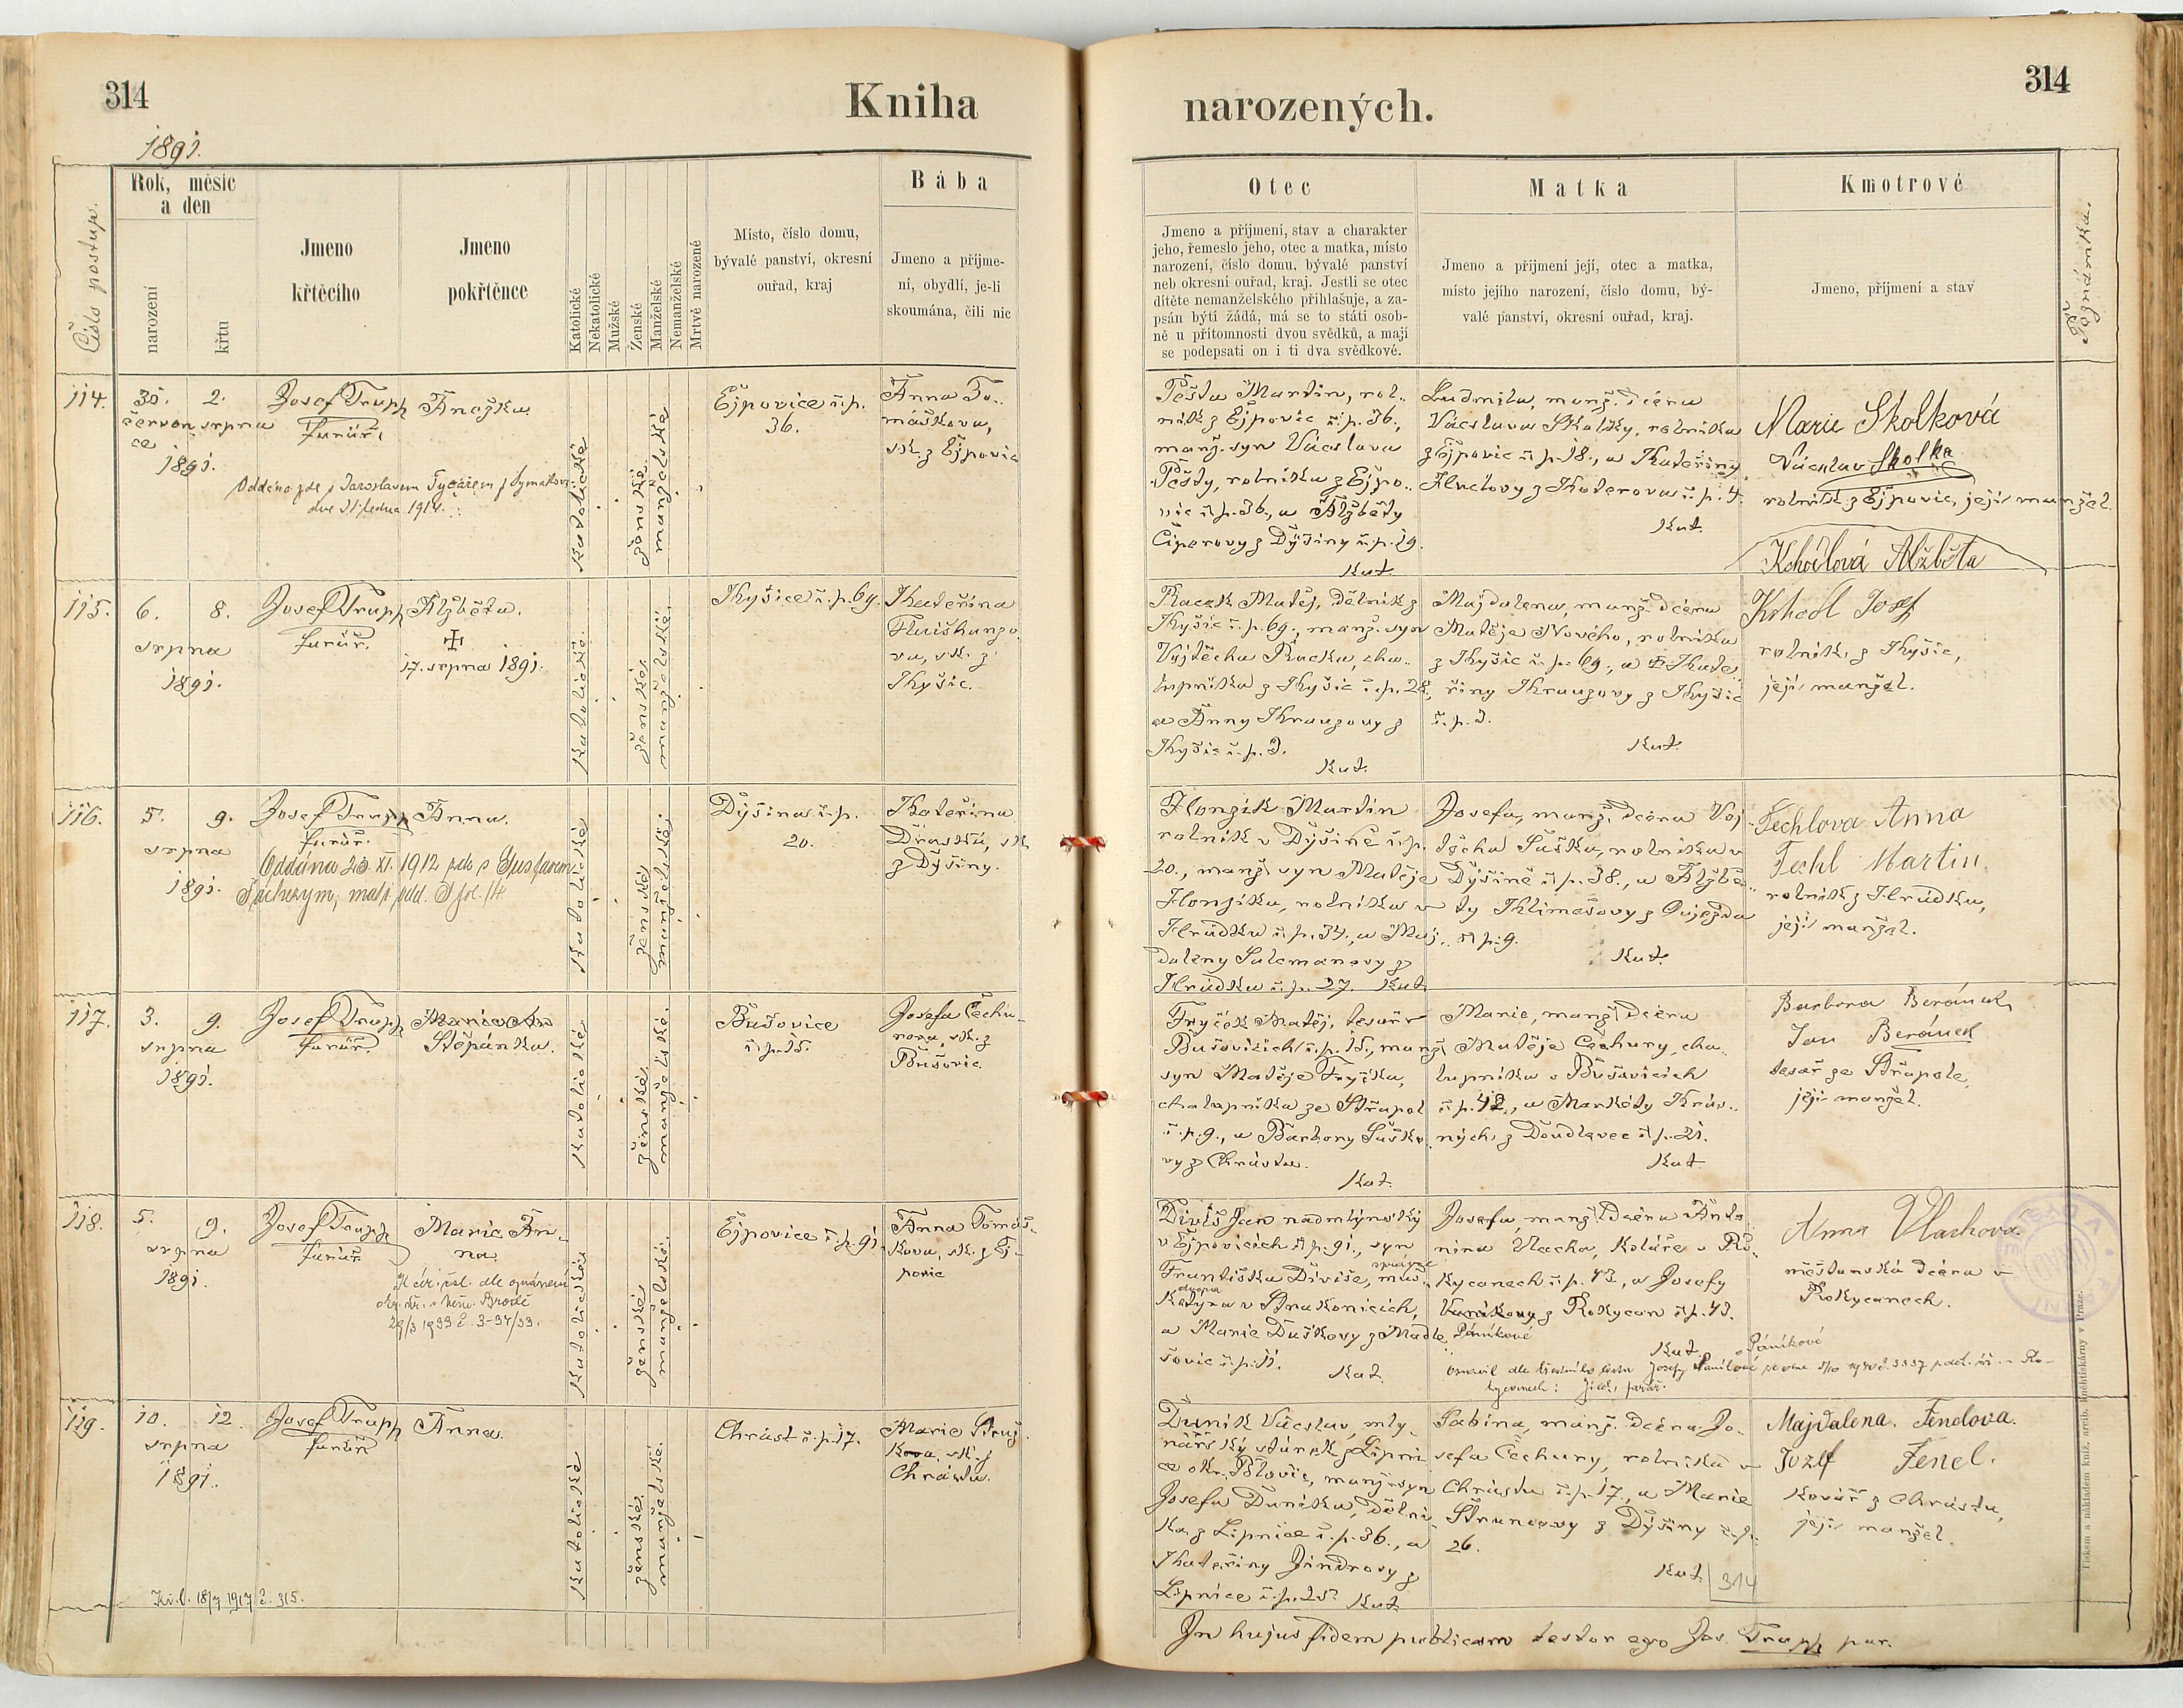 314
Kniha
1891.
Číslo postup.
Rok, měsíc
a den
narození
křtu
Jmeno
křtěcího
Jmeno
pokřtěnce
Katolické
Nekatolické
Mužské
Ženské
Manželské
Nemanželské
Mrtvě narozené
Místo, číslo domu,
bývalé panství, okresní
ouřad, kraj
Bába
Jmeno a příjme-
ní, obydlí, je-li
skoumána, čili nic
114.
30. 2.
červen srpna
ce
1891.
Josef Trapp
farář.
Anežka
Oddána zde s Jaroslavem
dne 1914.
katolické
ženské
manželské
Ejpovice č. p.
36.
Anna To-
máškova,
zk. z Ejpovic
115.
6. 8.
srpna
1891.
Josef Trapp
farář.
Alžběta.
17. srpna 1891.
katolické
ženské
manželské.
Kyšice č. p. 69.
Kateřina
va, zk. z
Kyšic.
116.
5. 9.
srpna
1891.
Josef Trapp
farář.
Anna.
Oddána 23. XI. 1912 zde s Gustavem
katolické
ženské
manželské.
Dýšina č. p.
20.
Kateřina
zk.
z Dýšiny.
117.
3. 9.
srpna
1891.
Josef Trapp
farář.
Štěpánka.
katolické
ženské
manželské.
Bušovice
č. p. 15.
Josefa Čechu-
rova, zk. z
Bušovic.
118.
5. 9.
srpna
1891.
Josef Trapp
farář
Marie An-
na.
katolické
ženské
manželské.
Ejpovice č. p. 91.
Anna Tomáš-
kova, zk. z Ej-
povic
119.
10. 12.
srpna
1891.
Josef Trapp
farář
Anna.
katolické
ženské
manželské.
Chrást č. p. 17.
Marie
kova, zk. z
Chrástu.
18/7 1917 č. 315.
314
narozených.
Otec
Jmeno a příjmení, stav a charakter
jeho, řemeslo jeho, otec a matka, místo
narození, číslo domu, bývalé panství
neb okresní ouřad, kraj. Jestli se otec
dítěte nemanželského přihlašuje, a za-
psán býti žádá, má se to státi osob-
ně u přítomnosti dvou svědků, a mají
se podepsati on i ti dva svědkové.
Matka
Jmeno a přijmení její, otec a matka,
místo jejího narození, číslo domu, bý-
valé panství, okresní ouřad, kraj.
Kmotrové
Jmeno, příjmení a stav
Poznámka.
Pešta Martin, rol-
ník z Ejpovic č. p. 36.,
manž. syn Václava
Pešty, rolníka z Ejpo-
vic č. p. 36., a Alžběty
Ciperovy z Dýšiny č. p. 19.
Kat.
Ludmila, manž. dcera
Václava Skolky, rolníka
z Ejpovic č. p. 18., a Kateřiny
z Koterova č. p. 4.
Kat.
Marie Skolková
Václav Skolka
rolník z Ejpovic, její manžel.
Alžběta
Matěj, dělník z
Kyšic č. p. 69., manž. syn
Vojtěcha Racka, cha-
lupníka z Kyšic č. p. 28.,
a Anny Krauzovy z
Kyšic č. p. 3.
Kat.
Majdalena, manž. dcera
Matěje Nového, rolníka
z Kyšic č. p. 69., a Kate-
řiny Krauzovy z Kyšic
č. p. 3.
Kat.
Josef
rolník z Kyšic,
její manžel.
Honzík Martin
rolník v Dýšině č. p.
20., manž. syn Matěje
Honzíka, rolníka v
Hrádku č. p. 34., a Maj-
daleny Salcmanovy z
Hrádku č. p. 27. Kat.
Josefa, manž. dcera Voj-
těcha Sušky, rolníka v
Dýšině č. p. 38., a Alžbě-
ty Klimešovy z Oujezda
č. p. 9.
Kat.
Fechlova Anna
Fechl Martin
rolník z Hrádku,
její manžel.
Fryček Matěj, tesař v
Bušovicích č. p. 15., manž.
syn Matěje Fryčka,
chalupníka ze Střapol
č. p. 9., a Barbory Suško-
vy z Chrástu.
Kat.
Marie, manž. dcera
Matěje Čechury, cha-
lupníka v Bušovicích
č. p. 42., a Markéty Krás-
ných z Doudlevec č. p. 21.
Kat.
Barbora Beránek
Jan Beránek
tesař ze Střapole,
její manžel.
Diviš Jan nadmlýnský
v Ejpovicích č. p. 91., syn
Františka Diviše,
v Strakonicích,
a Marie Duškovy z Radle-
šovic č. p. 11. Kat.
Josefa, manž. dcera Anto-
nína Vlacha, koláře v Ro-
kycanech č. p. 43., a Josefy
z Rokycan č. p. 43.
Páníkové
Kat.
Anna Vlachova.
měšťanská dcera v
Rokycanech.
Duník Václav, mly-
nářský stárek z Lipni-
ce okr. Blovic, manž. syn
Josefa Duníka, dělní-
ka z Lipnice č. p. 36., a
Kateřiny Jindrovy z
Lipnice č. p. 25. Kat.
Sabina, manž. dcera Jo-
sefa Čechury, rolníka v
Chrástu č. p. 17., a Marie
z Dýšiny č. p.
26.
Kat.
314
Majdalena Fenclova.
Jozef Fencl.
kovář z Chrástu,
její manžel.
In hujus fidem publicam testor ego Jos. Trapp par.
Tiskem a nákladem kníž. arcib. knihtiskárny v Praze.